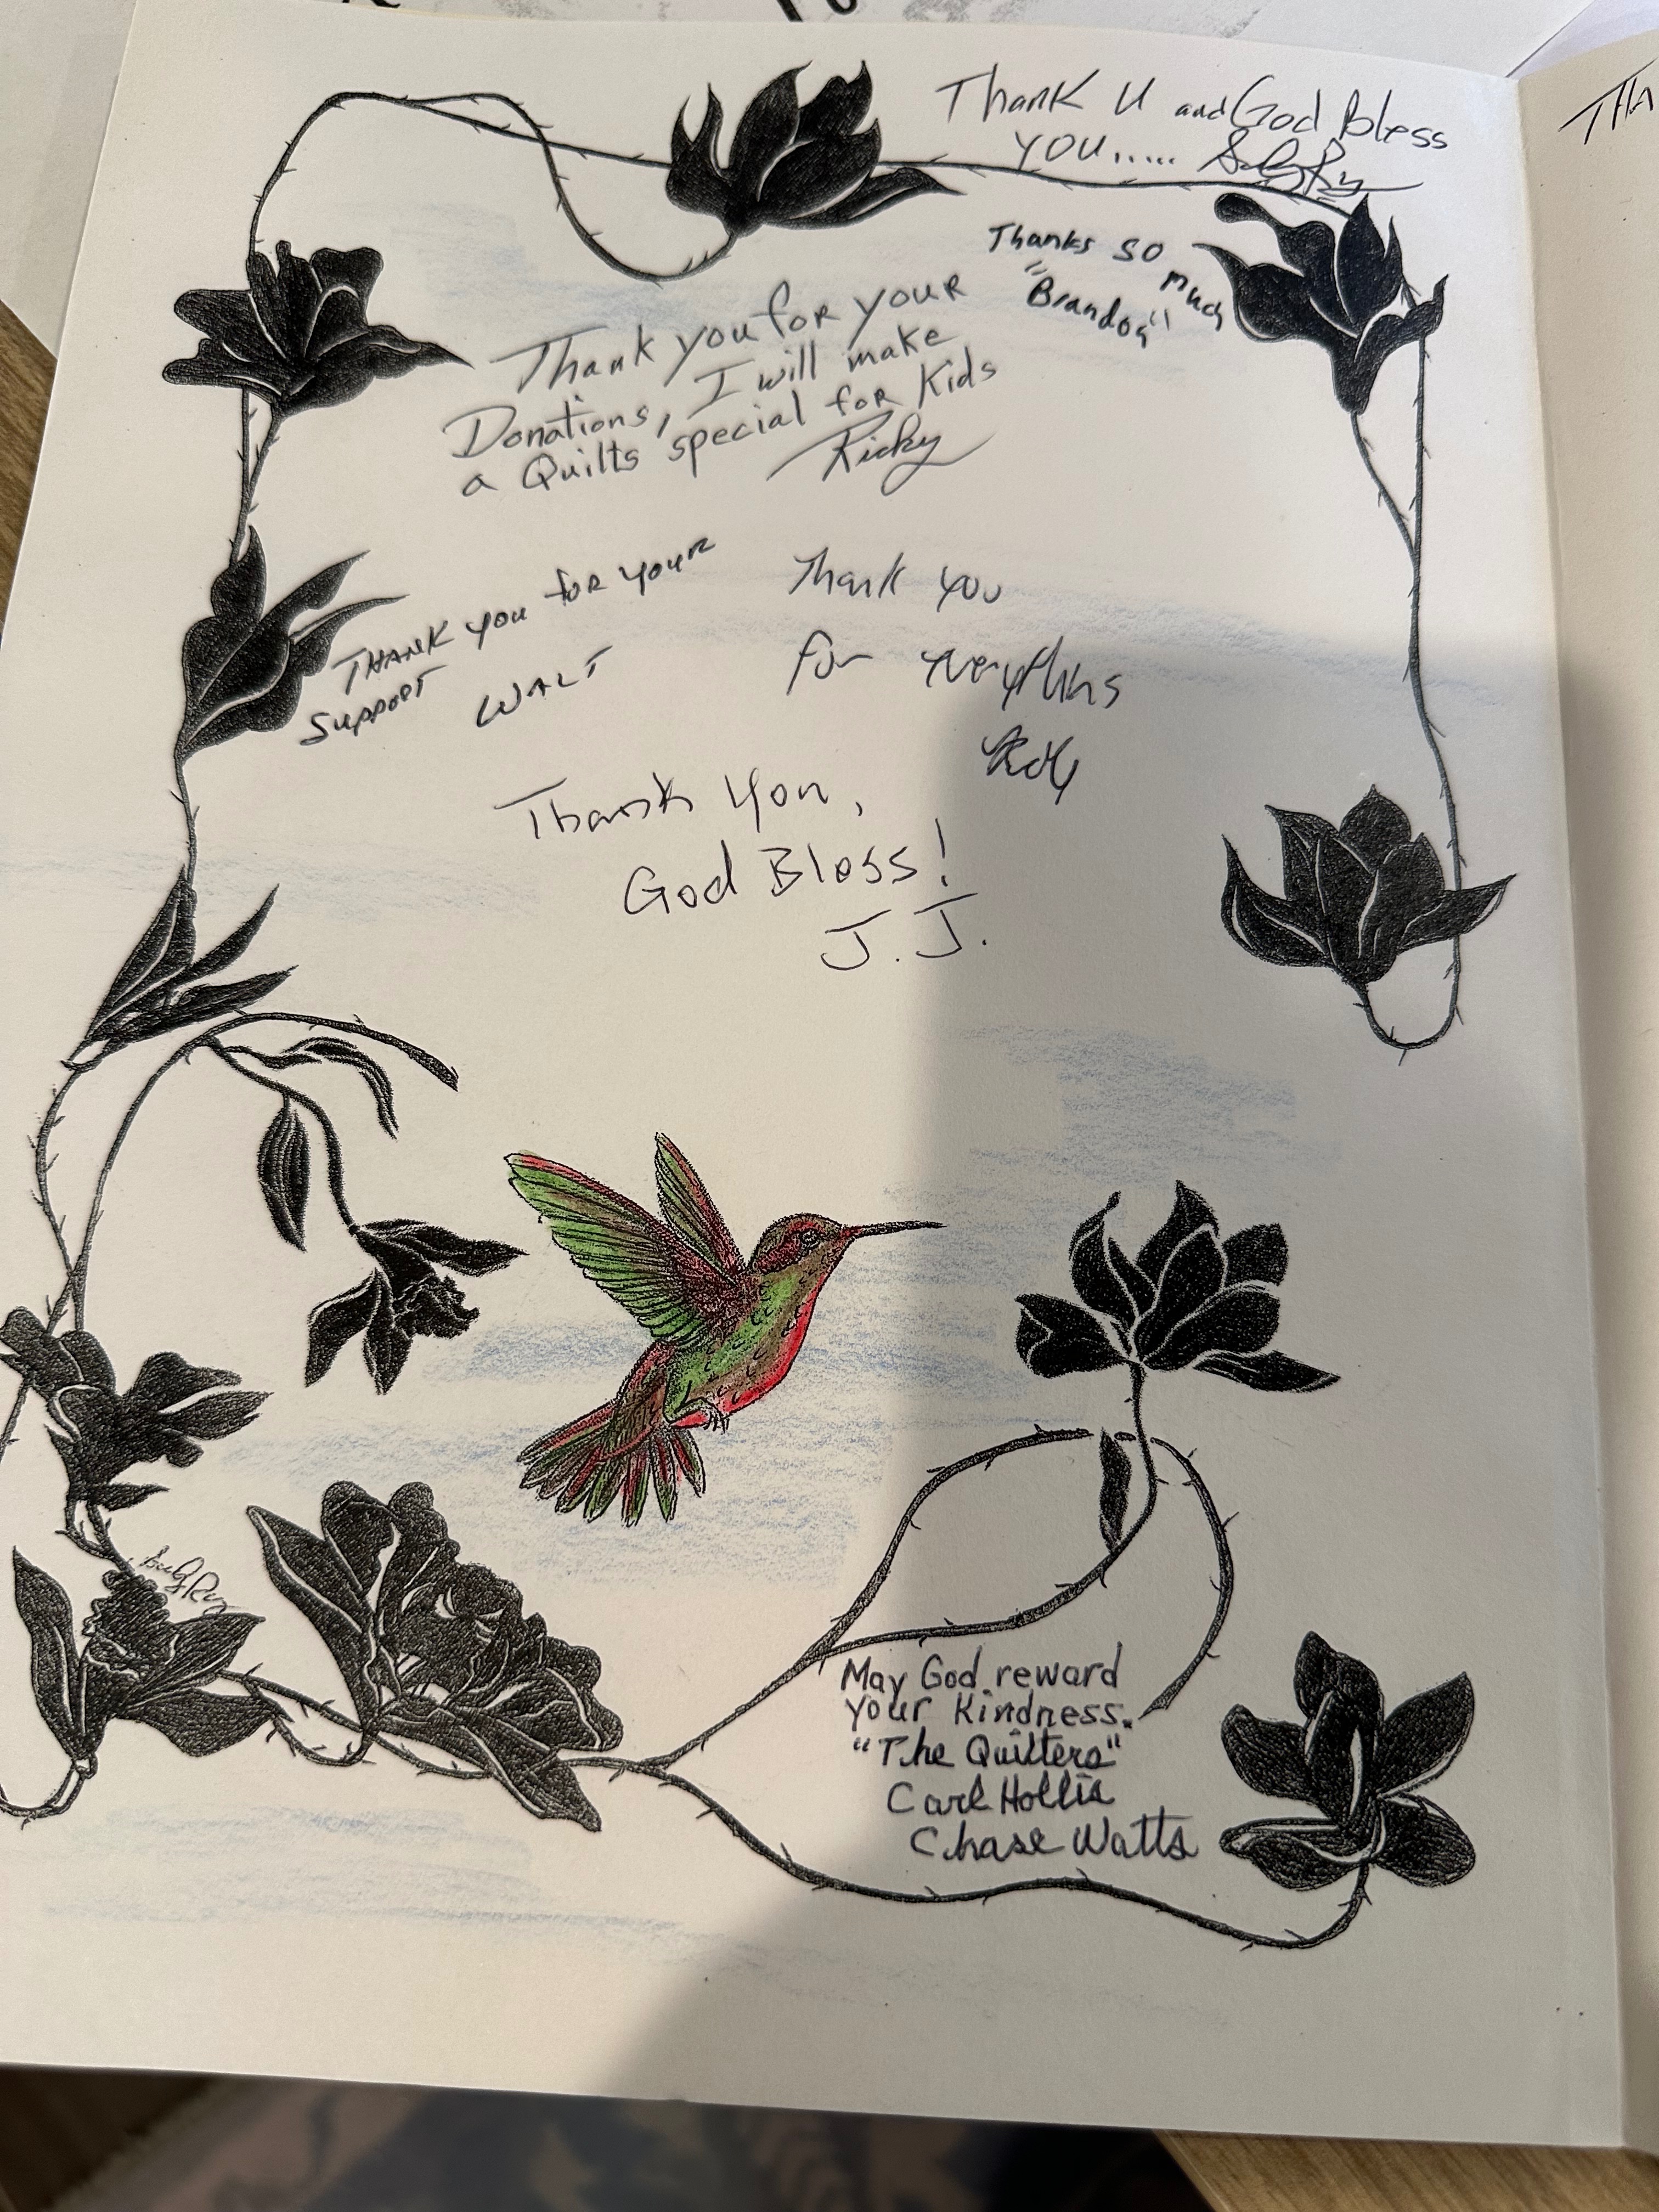 Thank U and God Bless
you.....
Thanks so much
"Brandon"
Thank you for your
Donations, I will make
a Quilts special for Kids
Ricky
THANK you for your
Support WALT
Thank you
for everything
Thank You,
God Bless!
J.J.
May God reward
your Kindness.
"The Quilters"
Carl Hollis
Chase Watts